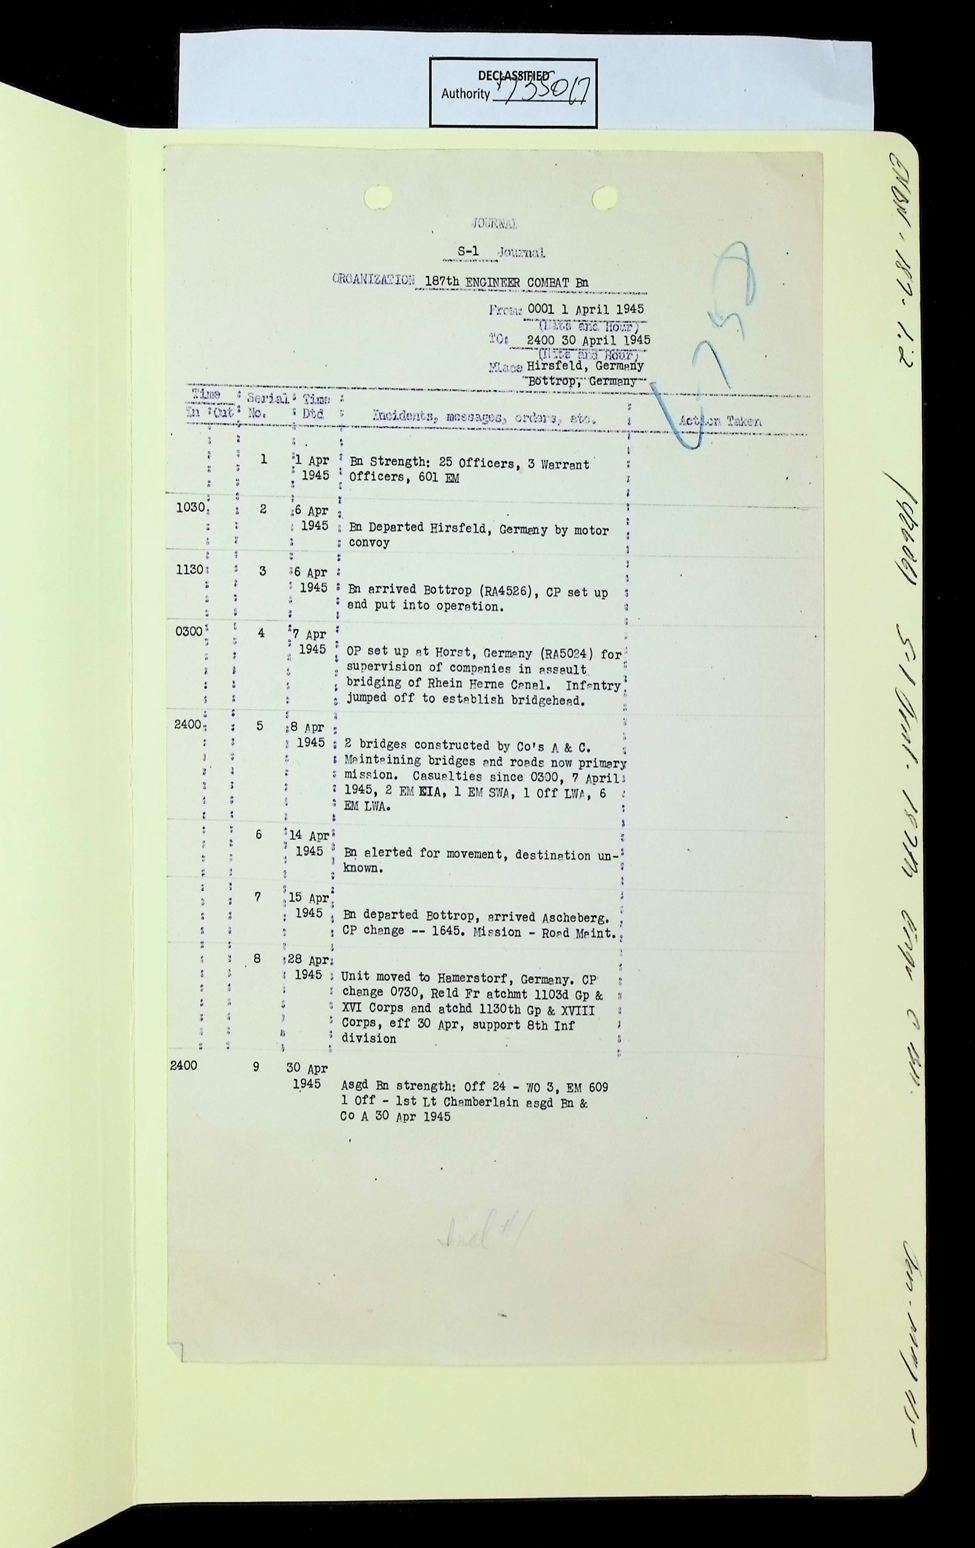 DECLASSIFIED
Authority 735017
JOURNAL
S-1 Journal
ORGANIZATION 187th ENGINEER COMBAT Bn
From: 0001 1 April 1945
(Date and Hour)
TO: 2400 30 April 1945
(Date and Hour)
Place Hirsfeld, Germany
Bottrop, Germany
Time : Serial : Time :
In : Out : No. : Dtd : Incidents, messages, orders, etc. : Action Taken
1 1 Apr Bn Strength: 25 Officers, 3 Warrant
1945 Officers, 601 EM
1030 2 6 Apr
1945 Bn Departed Hirsfeld, Germany by motor
convoy
1130 3 6 Apr
1945 Bn arrived Bottrop (RA4526), CP set up
and put into operation.
0300 4 7 Apr
1945 OP set up at Horst, Germany (RA5024) for
supervision of companies in assault
bridging of Rhein Herne Canal. Infantry
jumped off to establish bridgehead.
2400 5 8 Apr
1945 2 bridges constructed by Co's A & C.
Maintaining bridges and roads now primary
mission. Casualties since 0300, 7 April
1945, 2 EM KIA, 1 EM SWA, 1 Off LWA, 6
EM LWA.
6 14 Apr
1945 Bn alerted for movement, destination un-
known.
7 15 Apr
1945 Bn departed Bottrop, arrived Ascheberg.
CP change -- 1645. Mission - Road Maint.
8 28 Apr
1945 Unit moved to Hamerstorf, Germany. CP
change 0730, Reld Fr atchmt 1103d Gp &
XVI Corps and atchd 1130th Gp & XVIII
Corps, eff 30 Apr, support 8th Inf
division
2400 9 30 Apr
1945 Asgd Bn strength: Off 24 - WO 3, EM 609
1 Off - 1st Lt Chamberlain asgd Bn &
Co A 30 Apr 1945
Incl #1
ENBN-187-1.2
S-1 Jrnl. 187th Engr C Bn.